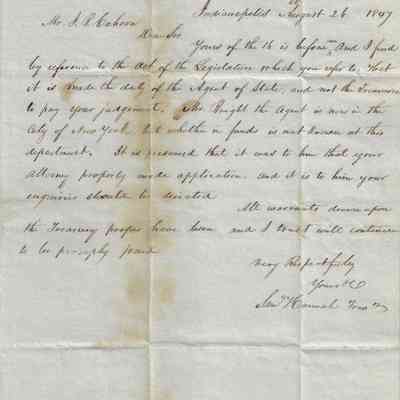 Indianapolis August 26 1847
Mr. J. R. Cahoon
Dear Sir
Yours of the 16 is before, And I find
by reference to the Act of the Legislature which you refer to, that
it is made the duty of the Agent of State, and not the Treasurer
to pay your judgement. The Agent is now in the
City of New York but whether in funds is not known at this
department. It is presumed that it was to him that your
attorney properly made application and it is to him your
enquiries should be directed
All warrants drawn upon
the Treasury proper have been and I trust will continue
to be promptly paid
Very Respectfully
Yours &c
Saml Hannah Treas